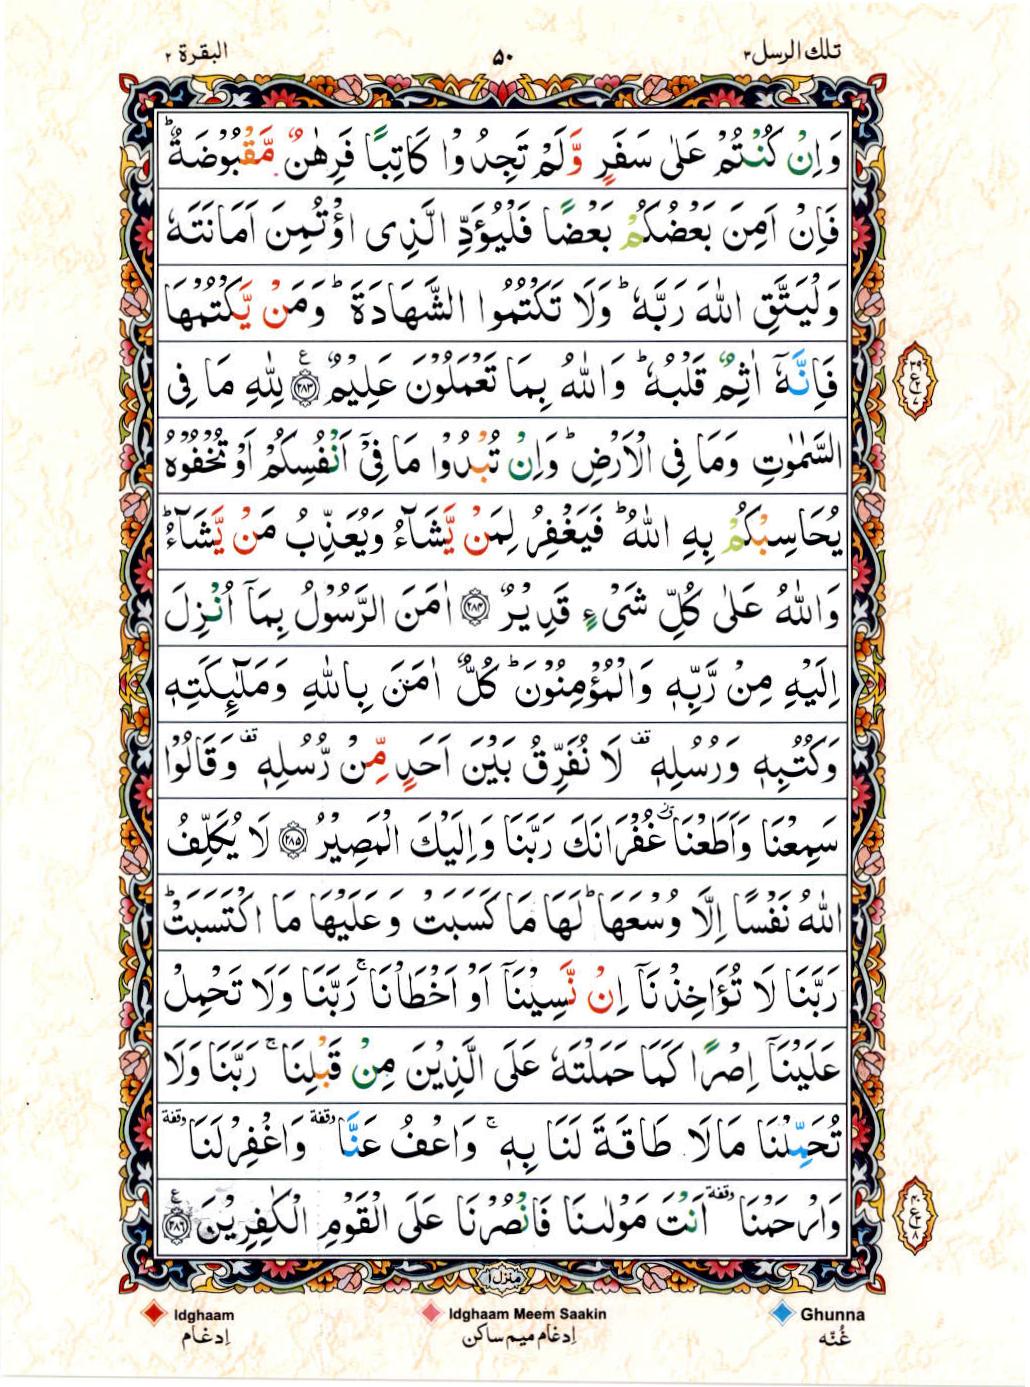 تلك الرسل ۳
۵۰
البقرة ۲
وَاِنْ كُنْتُمْ عَلٰى سَفَرٍ وَّلَمْ تَجِدُوْا كَاتِبًا فَرِهٰنٌ مَّقْبُوْضَةٌ ؕ
فَاِنْ اَمِنَ بَعْضُكُمْ بَعْضًا فَلْيُؤَدِّ الَّذِى اؤْتُمِنَ اَمَانَتَهٗ
وَلْيَتَّقِ اللّٰهَ رَبَّهٗ ؕ وَلَا تَكْتُمُوا الشَّهَادَةَ ؕ وَمَنْ يَّكْتُمْهَا
فَاِنَّهٗٓ اٰثِمٌ قَلْبُهٗ ؕ وَاللّٰهُ بِمَا تَعْمَلُوْنَ عَلِيْمٌ ۲۸۳ ع لِلّٰهِ مَا فِى
السَّمٰوٰتِ وَمَا فِى الْاَرْضِ ؕ وَاِنْ تُبْدُوْا مَا فِىْٓ اَنْفُسِكُمْ اَوْ تُخْفُوْهُ
يُحَاسِبْكُمْ بِهِ اللّٰهُ ؕ فَيَغْفِرُ لِمَنْ يَّشَآءُ وَيُعَذِّبُ مَنْ يَّشَآءُ ؕ
وَاللّٰهُ عَلٰى كُلِّ شَىْءٍ قَدِيْرٌ ۲۸۴ اٰمَنَ الرَّسُوْلُ بِمَآ اُنْزِلَ
اِلَيْهِ مِنْ رَّبِّهٖ وَالْمُؤْمِنُوْنَ ؕ كُلٌّ اٰمَنَ بِاللّٰهِ وَمَلٰٓئِكَتِهٖ
وَكُتُبِهٖ وَرُسُلِهٖ قف لَا نُفَرِّقُ بَيْنَ اَحَدٍ مِّنْ رُّسُلِهٖ قف وَقَالُوْا
سَمِعْنَا وَاَطَعْنَا ز غُفْرَانَكَ رَبَّنَا وَاِلَيْكَ الْمَصِيْرُ ۲۸۵ لَا يُكَلِّفُ
اللّٰهُ نَفْسًا اِلَّا وُسْعَهَا ؕ لَهَا مَا كَسَبَتْ وَعَلَيْهَا مَا اكْتَسَبَتْ ؕ
رَبَّنَا لَا تُؤَاخِذْنَآ اِنْ نَّسِيْنَآ اَوْ اَخْطَاْنَا ۚ رَبَّنَا وَلَا تَحْمِلْ
عَلَيْنَآ اِصْرًا كَمَا حَمَلْتَهٗ عَلَى الَّذِيْنَ مِنْ قَبْلِنَا ۚ رَبَّنَا وَلَا
تُحَمِّلْنَا مَا لَا طَاقَةَ لَنَا بِهٖ ۚ وَاعْفُ عَنَّا وقفة وَاغْفِرْ لَنَا وقفة
وَارْحَمْنَا وقفة اَنْتَ مَوْلٰىنَا فَانْصُرْنَا عَلَى الْقَوْمِ الْكٰفِرِيْنَ ۲۸۶ ع
منزل ۱
Idghaam
Idghaam Meem Saakin
Ghunna
اِدغام
اِدغام میم ساکن
غُنّه